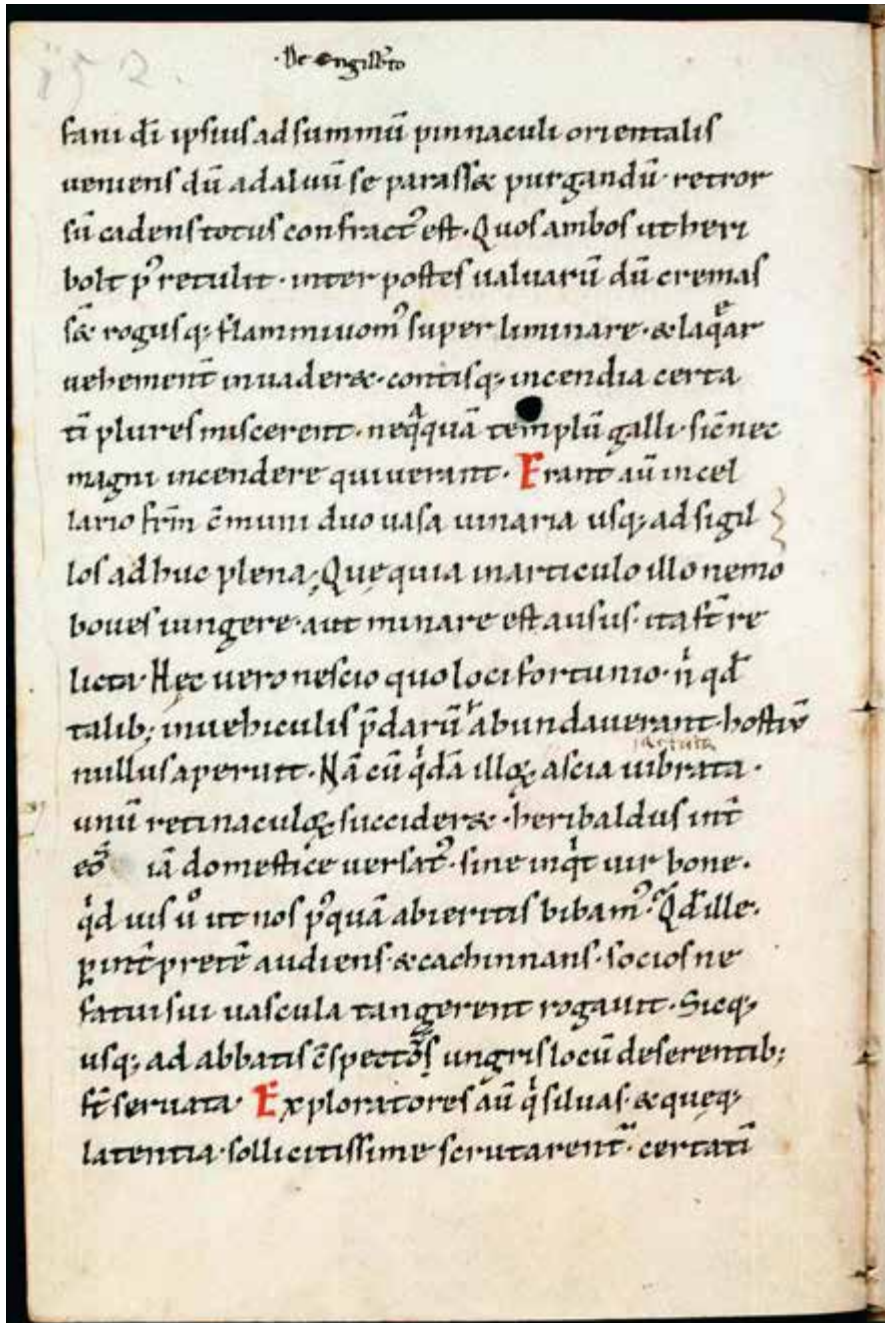 152.
·De engilb̾to
fani dī ipsius ad summū pinnaculi orientalis
ueniens dū ad aluū se parass& purgandū· retror
sū cadens totus confract᾿ est· Quos ambos ut heri
bolt p᾿ retulit· inter postes ualuarū dū cremas
s& rogusq; flammiuom᾿ super liminare· & laqͤar
uehemen̄t inuader&· contisq; incendia certa
tī plures miscerent· neqͣquā templū galli· sic̄ nec
magni incendere quiuerant· Erant aū in cel
lario frm̄ c̄muni duo uasa uinaria usq; ad sigil
los adhuc plena; Quę quia in articulo illo nemo
boues iungere· aut minare est ausus· ita st̄ re
licta· Hęc uero nescio quo loci fortunio· n̍ qđ
talib; in uehiculis p̄darū abundauerant· hostiū
nullus aperuit· Nā cū qͥdā illoꝝ ascia uibrata·
unū retinaculoꝝ succider&· heribaldus int̄
eos iā domestice uersat᾿· sine inqͥt uir bone·
qͥd uis uͦ ut nos p᾿quā abieritis bibam᾿· Qđ ille·
ꝑ int̄pretē audiens· & cachinnans· socios ne
fatui sui uascula tangerent rogauit· Sicq;
usq; ad abbatis c̄spectū s ungris locū deserentib;
st̄ seruata· Exploratores aū qͥ siluas· & quęq;
latentia· sollicitissime scrutarent᾿· certatī